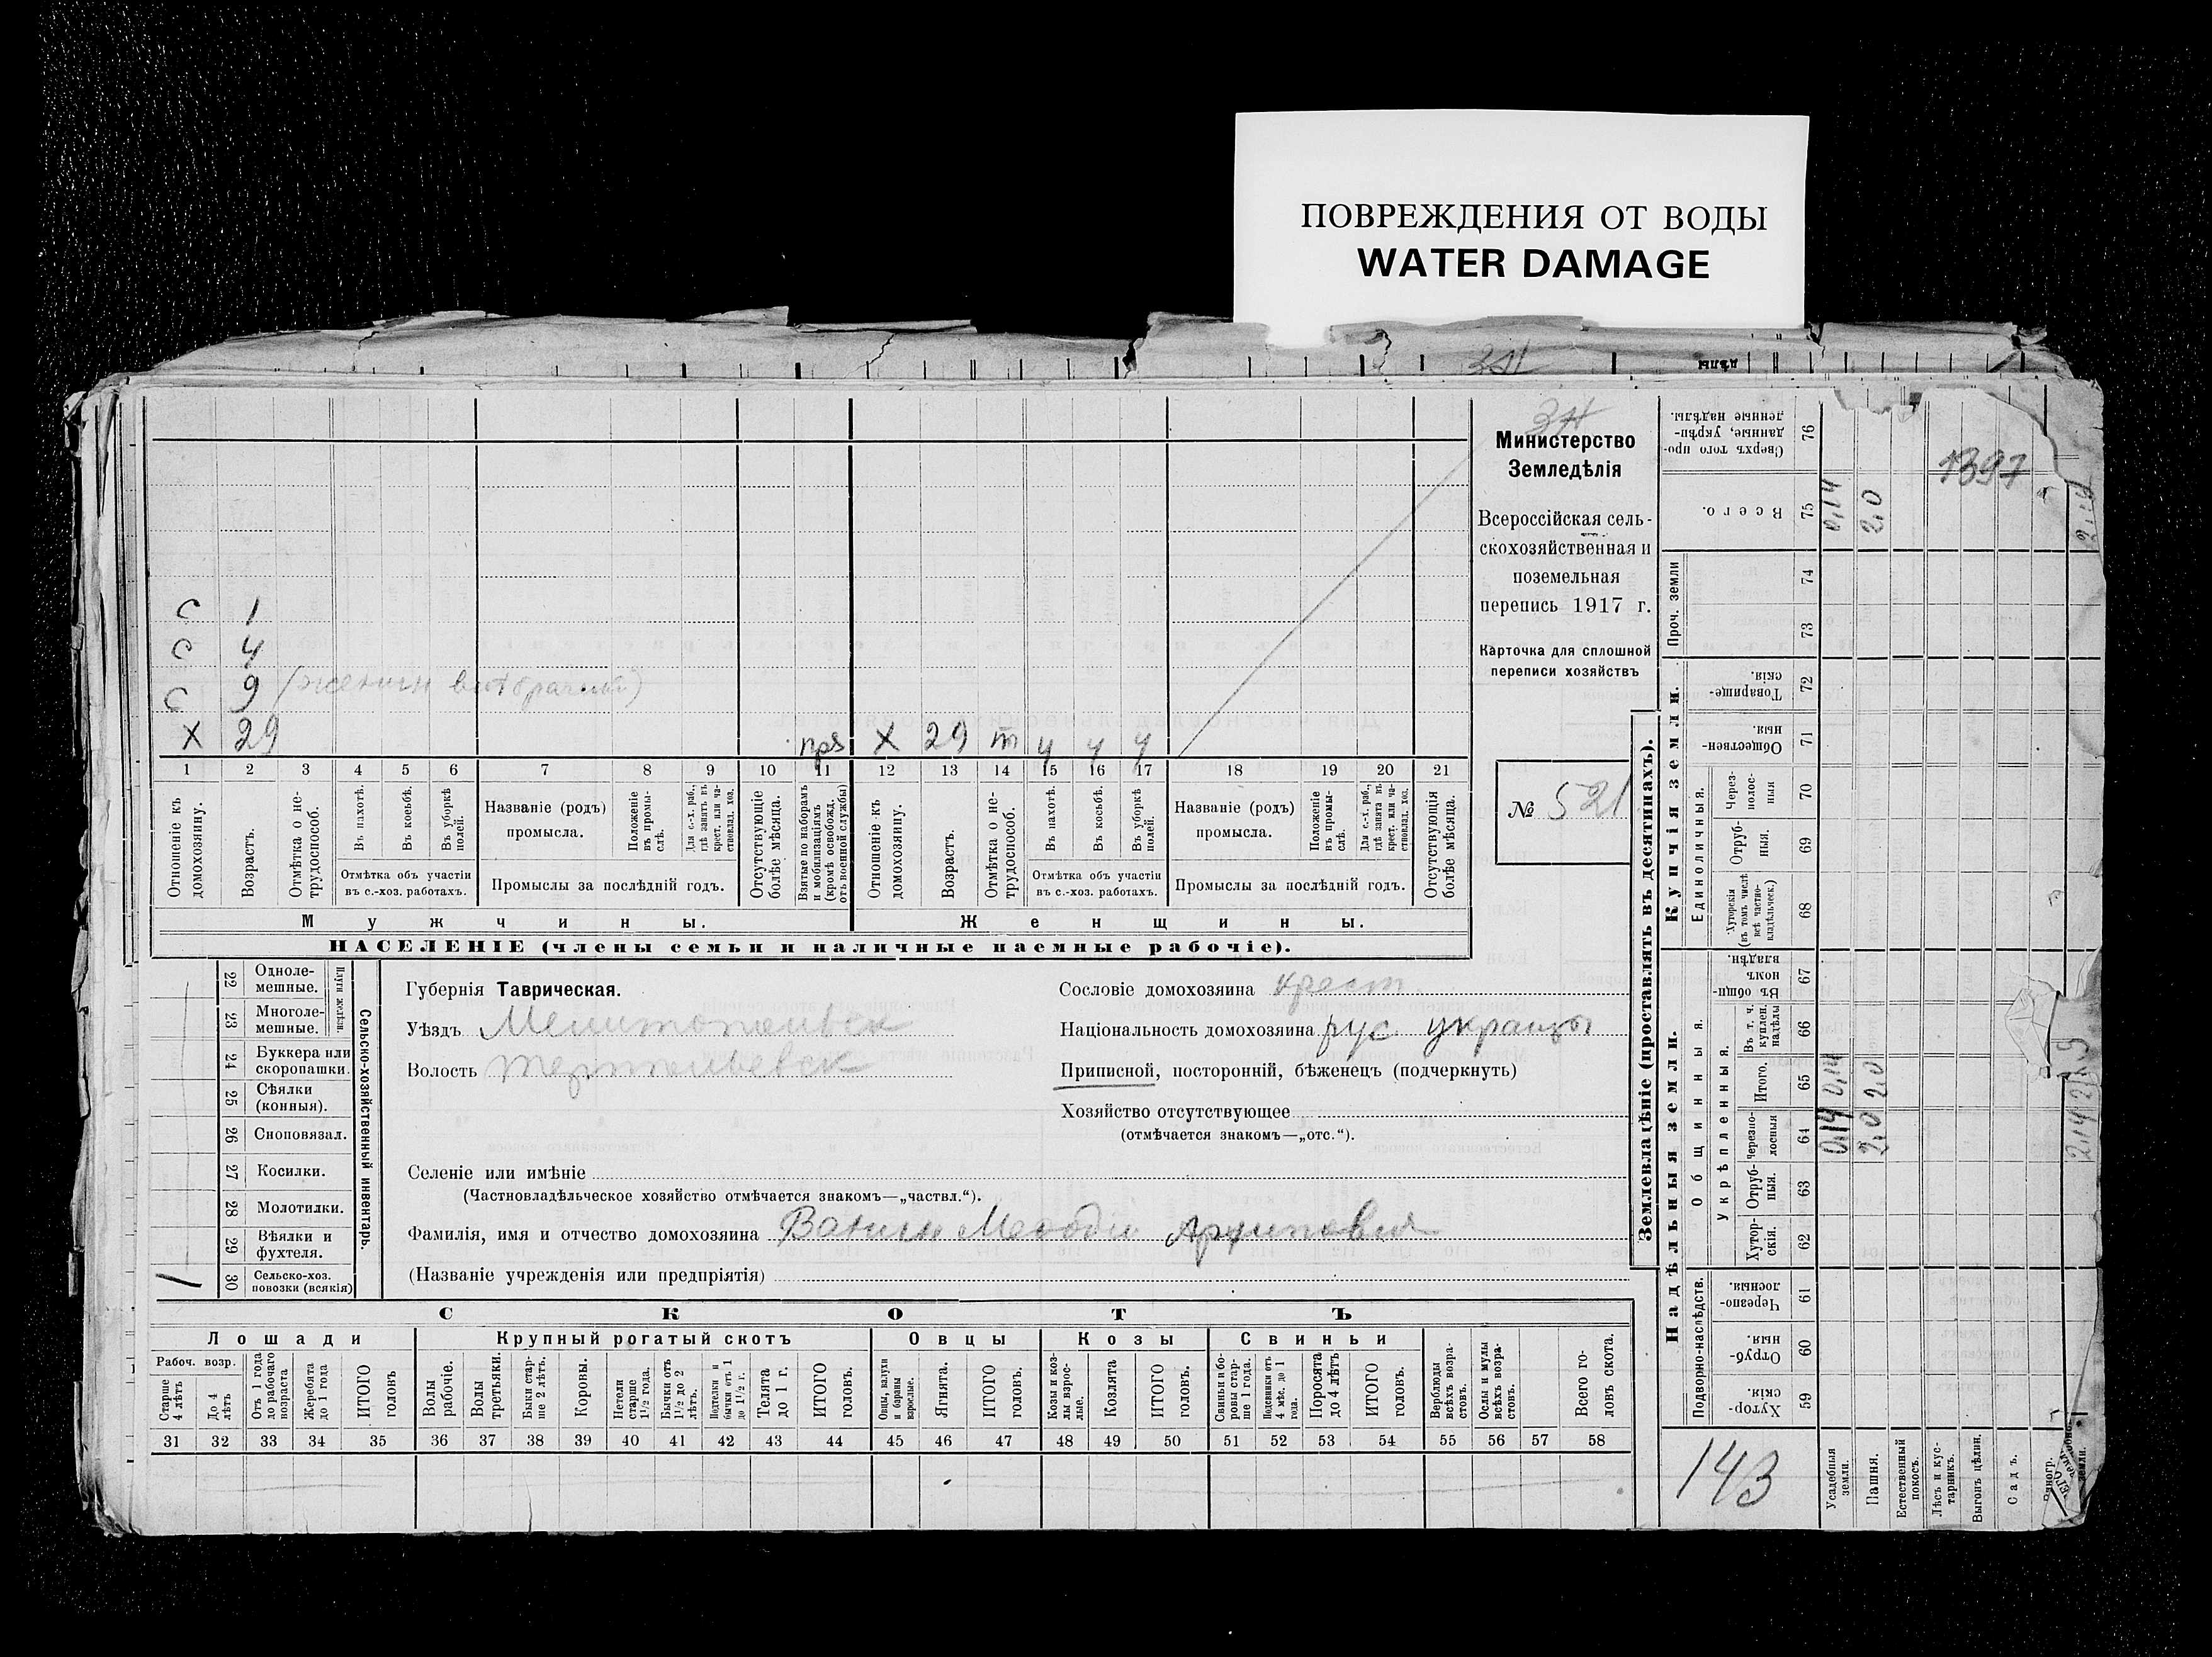 ПОВРЕЖДЕНИЯ ОТ ВОДЫ
WATER DAMAGE
дѣлы
Министерство
Земледѣлія
Всероссійская сель-
скохозяйственная и
поземельная
перепись 1917 г.
Карточка для сплошной
переписи хозяйствъ
№ 521
С 1
С 4
С 9
Х 29 Х 29 4 4 4
1 2 3 4 5 6 7 8 9 10 11 12 13 14 15 16 17 18 19 20 21
Отношеніе къ домохозяину.
Возрастъ.
Отмѣтка о не-трудоспособ.
Въ пахотѣ.
Въ косьбѣ.
Въ уборкѣ полей.
Отмѣтка объ участіи въ с.-хоз. работахъ.
Названіе (родъ) промысла.
Положеніе въ промы-слѣ.
Для с.-х. раб., гдѣ занятъ въ крест. или ча-стновлад. хоз.
Промыслы за послѣдній годъ.
Отсутствующіе болѣе мѣсяца.
Взятые по наборамъ и мобилизаціямъ (кромѣ освобожд. отъ военной службы)
Отношеніе къ домохозяину.
Возрастъ.
Отмѣтка о не-трудоспособ.
Въ пахотѣ.
Въ косьбѣ.
Въ уборкѣ полей.
Отмѣтка объ участіи въ с.-хоз. работахъ.
Названіе (родъ) промысла.
Положеніе въ промы-слѣ.
Для с.-х. раб., гдѣ занята въ крест. или ча-стновлад. хоз.
Промыслы за послѣдній годъ.
Отсутствующія болѣе мѣсяца.
Мужчины. Женщины.
НАСЕЛЕНІЕ (члены семьи и наличные наемные рабочіе).
22 Одноле-мешные.
23 Многоле-мешные.
Плуги желѣзн.
24 Буккера или скоропашки.
25 Сѣялки (конныя).
26 Сноповязал.
27 Косилки.
28 Молотилки.
29 Вѣялки и фухтеля.
30 Сельско-хоз. повозки (всякія)
Сельско-хозяйственный инвентарь.
Губернія Таврическая.
Уѣздъ Мелитопольск
Волость
Селеніе или имѣніе
(Частновладѣльческое хозяйство отмѣчается знакомъ—„частвл.“).
Фамилія, имя и отчество домохозяина
(Названіе учрежденія или предпріятія)
Сословіе домохозяина крест.
Національность домохозяина рус
Приписной, посторонній, бѣженецъ (подчеркнуть)
Хозяйство отсутствующее
(отмѣчается знакомъ—„отс.“).
СКОТЪ
Лошади Крупный рогатый скотъ Овцы Козы Свиньи
Рабоч. возр.
Старше 4 лѣтъ
До 4 лѣтъ
Отъ 1 года до рабочаго возраста
Жеребята до 1 года
ИТОГО головъ
Волы рабочіе.
Волы третьяки.
Быки стар-ше 2 лѣтъ.
Коровы.
Нетели старше 1½ года.
Бычки отъ 1½ до 2 лѣтъ.
Подтелки и бычки отъ 1 до 1½ г.
Телята до 1 г.
ИТОГО головъ.
Овцы, валухи и бараны взрослые.
Ягнята.
ИТОГО головъ.
Козы и коз-лы взрос-лые.
Козлята
ИТОГО головъ.
Свиньи и бо-ровы стар-ше 1 года.
Подсвинки отъ 4 мѣс. до 1 года.
Поросята до 4 лѣтъ
ИТОГО головъ.
Верблюды всѣхъ возра-стовъ.
Ослы и мулы всѣхъ возра-стовъ.
Всего го-ловъ скота.
31 32 33 34 35 36 37 38 39 40 41 42 43 44 45 46 47 48 49 50 51 52 53 54 55 56 57 58
Землевладѣніе (проставлять въ десятинахъ).
Купчія земли.
Надѣльныя земли.
Сверхъ того про-данные, укрѣп-ленные надѣлы. 76
Всего. 75 0,14 2,0
1397
Проч. земли 74 73
Товарище-скія. 72
Обществен-ныя. 71
Единоличныя.
Через-полос-ныя 70
Отруб-ныя. 69
Хуторскія (въ томъ числѣ всѣ частно-владѣльческ.) 68
Общинныя.
Въ общин-номъ владѣн. 67
Укрѣпленныя.
Въ т. ч. куплен. надѣлы 66
Итого. 65 0,14 2,0
Черезпо-лосныя 64 0,14 2,0
Отруб-ныя. 63
Хутор-скія. 62
Подворно-наслѣдств.
Черезпо-лосныя 61
Отруб-ныя. 60
Хутор-скія. 59
143
Усадебныя земли.
Пашня.
Естественный покосъ.
Лѣсъ и кус-тарникъ.
Выгонъ цѣлин.
Садъ.
земли.